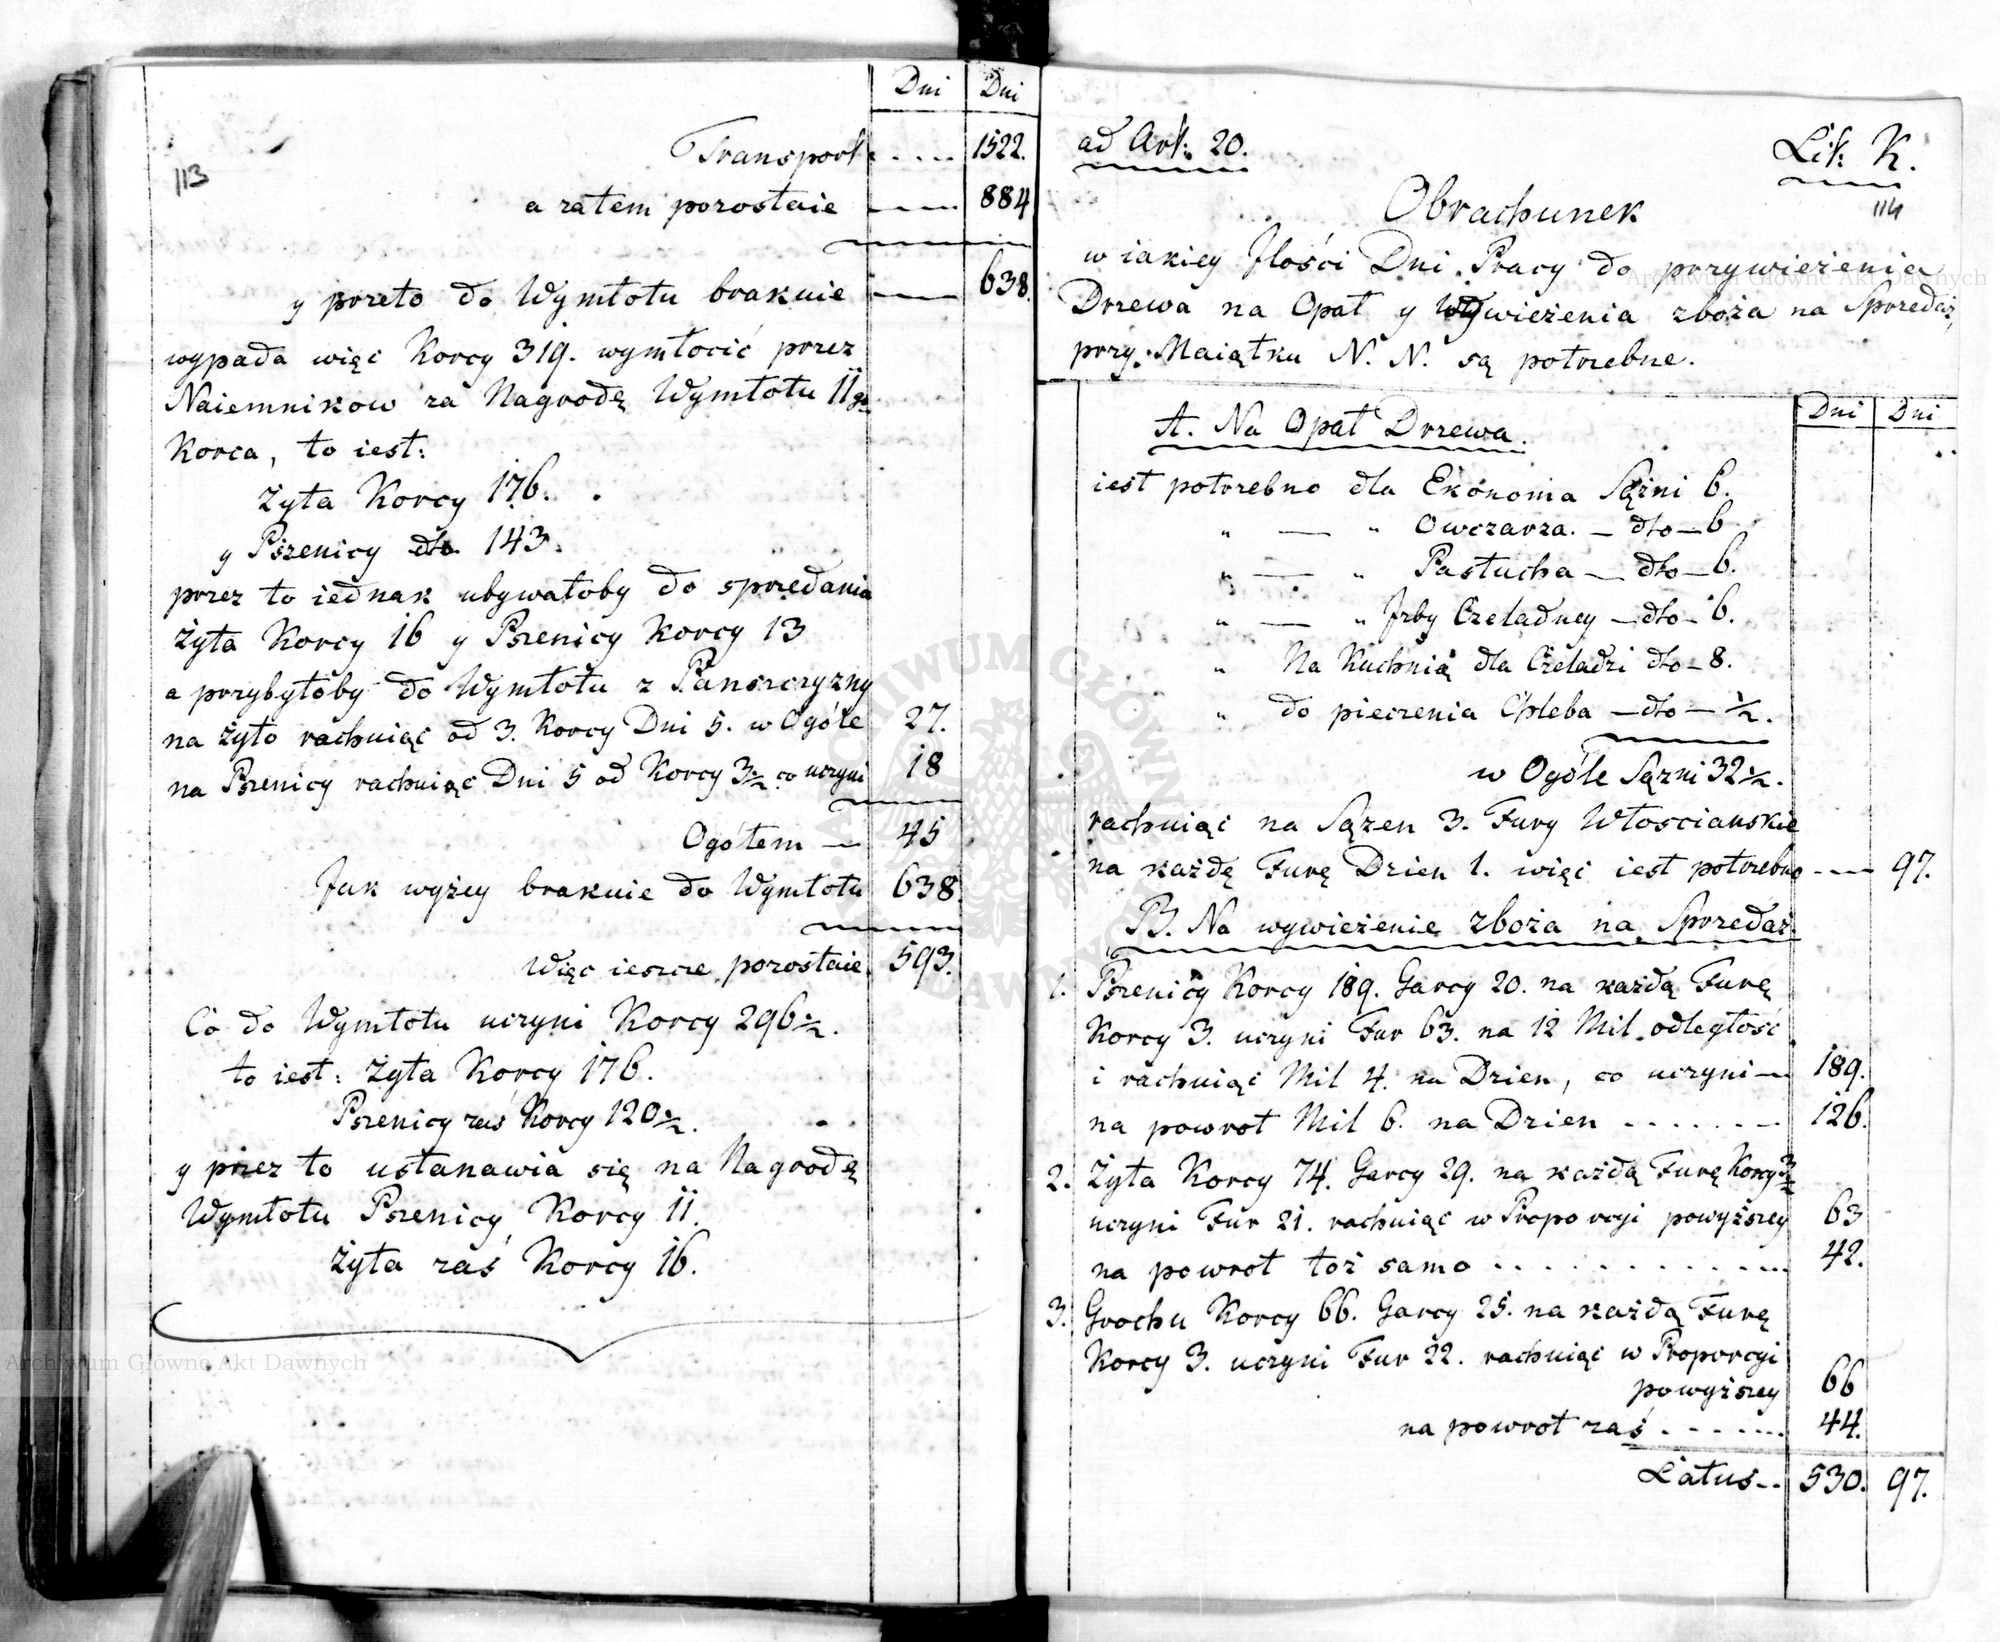 Dni Dni
113
Transport . . . . 1522.
a zatem pozostaie 884
y przeto do Wymłotu brakuie 638.
wypada więc Korcy 319. wymłocić przez
Naiemnikow za Nagrodę Wymłotu 11go
Korca, to iest:
Żyta Korcy 176.
y Pszenicy dto 143.
przez to iednak ubywałoby do sprzedania
Żyta Korcy 16 y Pszenicy Korcy 13
a przybyłoby do Wymłotu z Panszczyzny
na żyto rachuiąc od 3. Korcy Dni 5. w Ogóle 27.
na Pszenicy rachuiąc Dni 5 od Korcy 3½ co uczyni 18
Ogółem — 45
Jak wyżey brakuie do Wymłotu 638.
Więc ieszcze pozostaie 593.
Co do Wymłotu uczyni Korcy 296½.
to iest: Żyta Korcy 176.
Pszenicy zaś Korcy 120½.
y przez to ustanawia się na Nagrodę
Wymłotu Pszenicy Korcy 11.
Żyta zaś Korcy 16.
ad Art: 20.
Lit: K.
114
Obrachunek
w iakiey Ilości Dni Pracy do przywiezienia
Drzewa na Opał y wywiezienia zboża na Sprzedaż,
przy Maiątku N. N. są potrzebne.
Dni Dni
A. Na Opał Drzewa.
iest potrzebno dla Ekonoma Sążni 6.
" — " Owczarza. — dto — 6
" — " Pastucha — dto — 6.
" — " Izby Czeladney — dto — 6.
" Na Kuchnią dla Czeladzi dto — 8.
" do pieczenia Chleba — dto — ½.
w Ogóle Sązni 32½.
rachuiąc na Sązen 3. Fury Włoscianskie
na każdę Furę Dzien 1. więc iest potrzebno — 97.
B. Na wywiezienie zboża na Sprzedaż.
1. Pszenicy Korcy 189. Garcy 20. na każdą Furę
Korcy 3. uczyni Fur 63. na 12 Mil odległość
i rachuiąc Mil 4. na Dzien, co uczyni — 189.
na powrot Mil 6. na Dzien . . . . . . . 126.
2. Żyta Korcy 74. Garcy 29. na każdą Furę Korcy 3½
uczyni Fur 21. rachuiąc w Proporcyi powyższey 63
na powrot toż samo . . . . . . . . . . . . 42.
3. Grochu Korcy 66. Garcy 25. na każdą Furę
Korcy 3. uczyni Fur 22. rachuiąc w Proporcyi
powyższey 66
na powrot zaś . . . . . . . 44.
Latus . . 530. 97.
Archiwum Główne Akt Dawnych
Archiwum Główne Akt Dawnych
ARCHIWUM GŁÓWNE AKT DAWNYCH